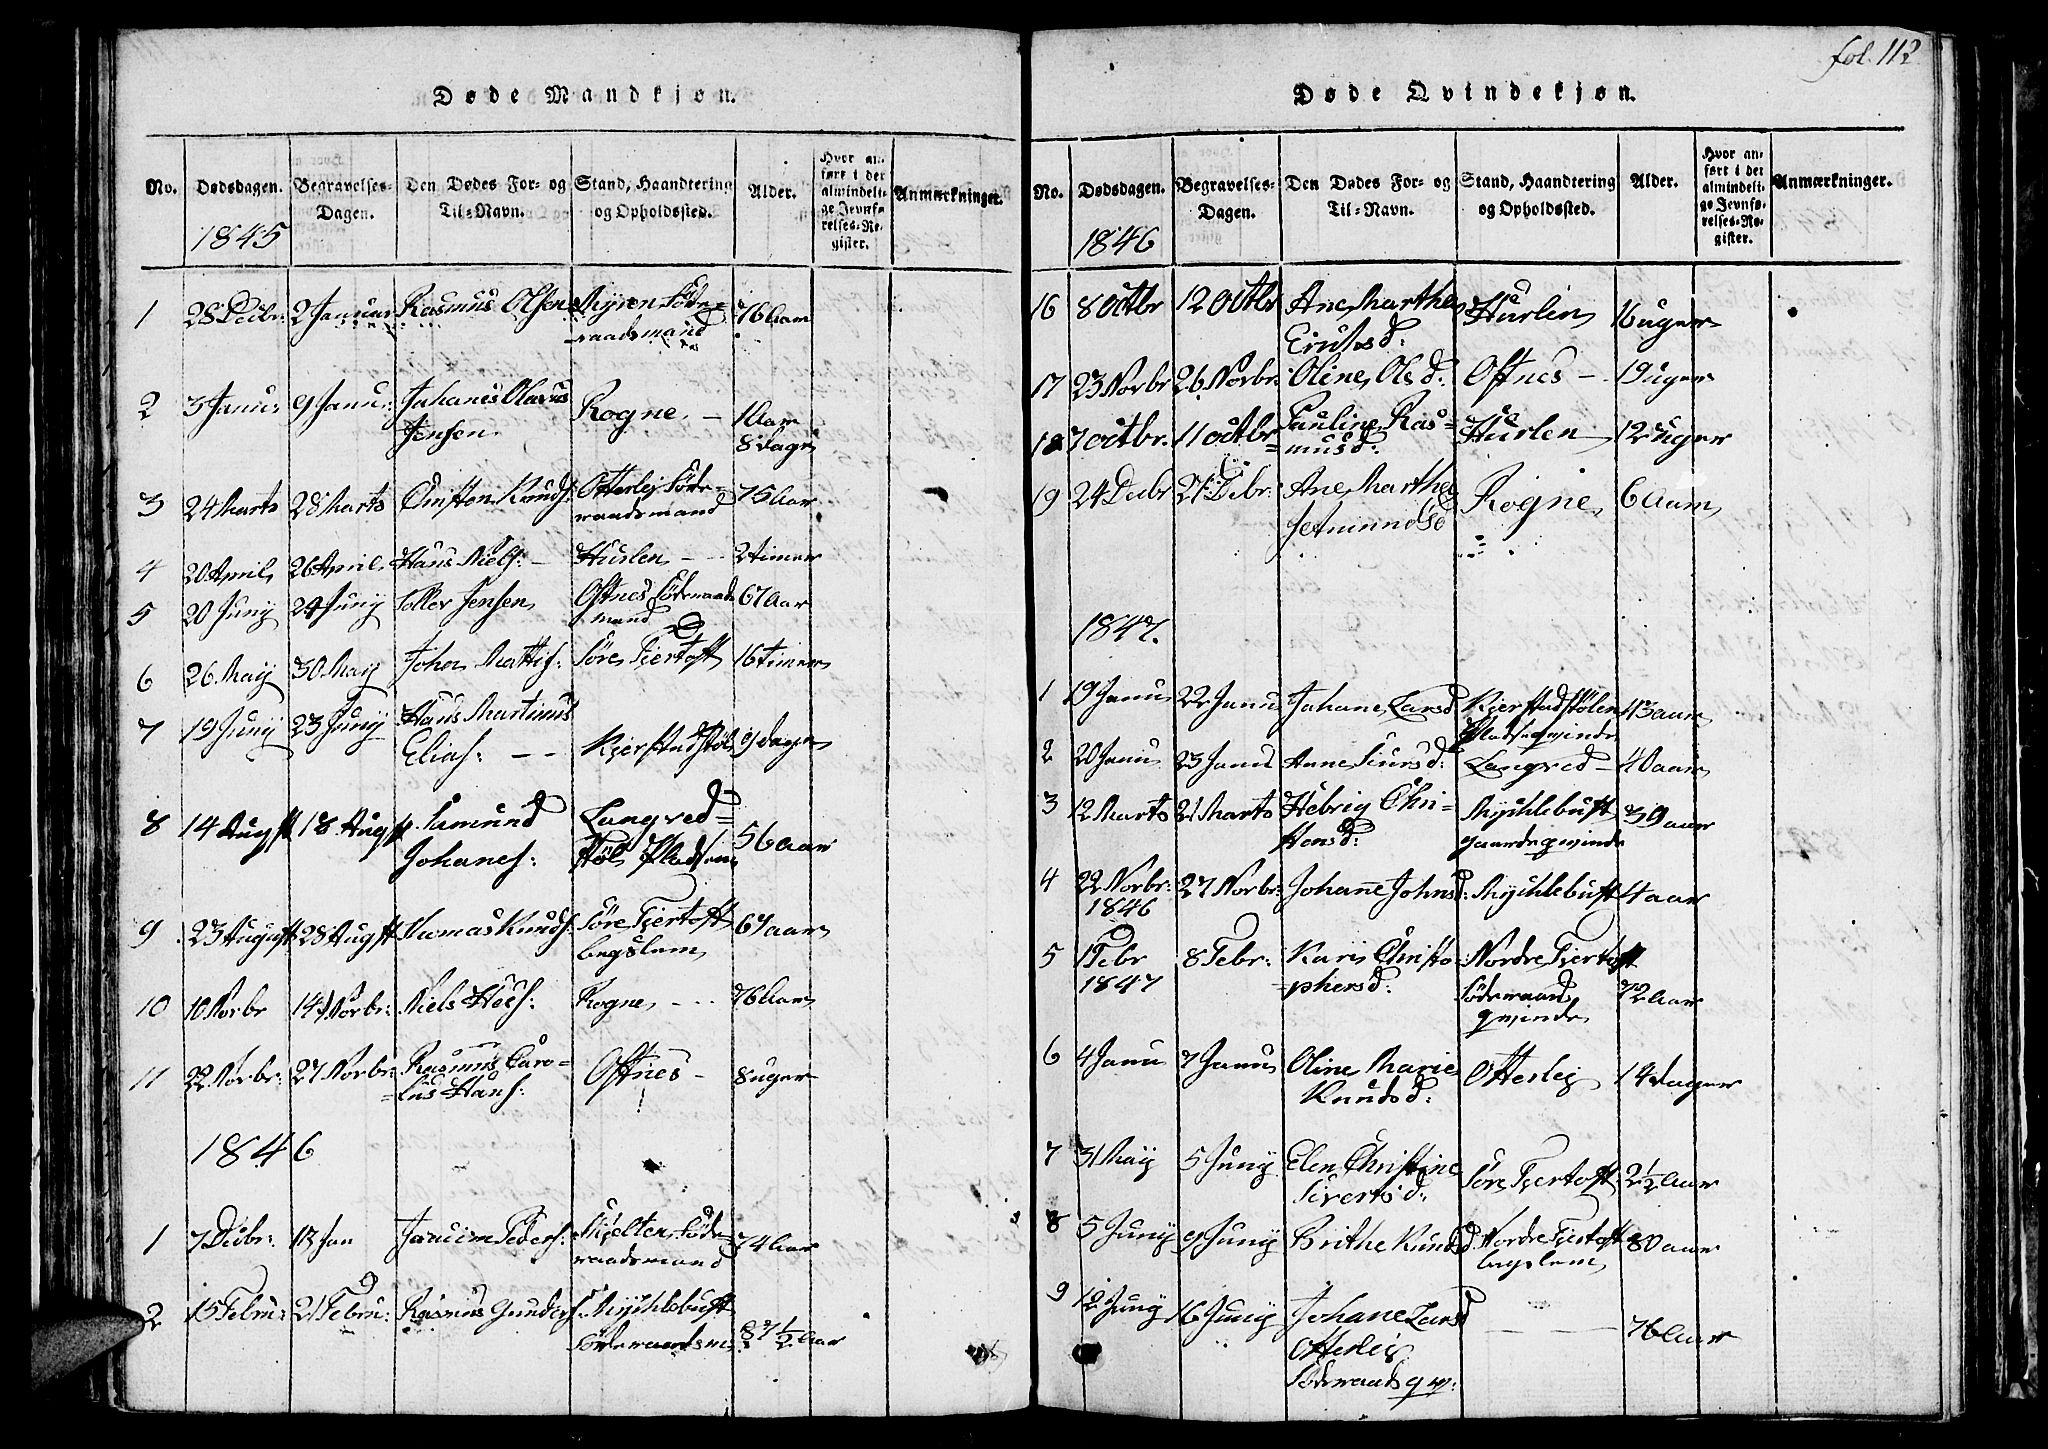 fol. 112
Døde Mandkjøn.
No. Dødsdagen. Begravelses-Dagen. Den Dødes For- og Til-Navn. Stand, Haandtering og Opholdssted. Alder. Hvor anført i det almindelige Jevnførelses-Register. Anmærkninger.
1845
1 28 Decbr: 2 Januar Rasmus Olsen Myren Föde-
raadsmand 76 Aar
2 3 Janu: 9 Janu: Johanes Olavus
Jensen Rogne 1 Aar
8 Dage
3 24 Marts 28 Marts Christen Knuds: Otterlej Föde-
raadsmand 75 Aar
4 20 April 26 April Hans Niels: Hurlen 2 timer
5 20 Junÿ 24 Junÿ Toller Jensen Oftnes Föderaads
mand 67 Aar
6 26 Maÿ 30 Maÿ Johan Mattis: Söre Fiertoft 16 timer
7 19 Junÿ 23 Junÿ Hans Martinus
Elias: Kierstadstöl 9 dage
8 14 Augst 18 Augst Aamund
Johanes: Langved-
Stöl Pladsem 56 Aar
9 23 August 28 Augst Thomas Knuds: Söre Fiertoft
legslem 67 aar
10 10 Norbr 14 Norbr: Niels Hees: Rogne 76 Aar
11 22 Norbr: 27 Norbr: Rasmus Caro-
lus Hans: Oftnes 8 uger
1846
1 7 Decbr: 13 Jan Joacim Peders: Mjelten Föde
raadsmand 74 Aar
2 15 Febru: 21 Febru: Rasmus Gunders: Mÿchlebust
Föderaadsm 87½ Aar
Døde Qvindekjøn.
No. Dødsdagen. Begravelses-Dagen. Den Dødes For- og Til-Navn. Stand, Haandtering og Opholdssted. Alder. Hvor anført i det almindelige Jevnførelses-Register. Anmærkninger.
1846
16 8 Octbr 12 Octbr Ane Marthe
Knutsd: Hurlen 16 uger
17 23 Norbr 26 Norbr: Oline Olsd: Oftnes 19 uger
18 7 Octbr. 11 Octbr Pauline Ras-
musd: Hurlen 12 uger
19 24 Decbr 27 Decbr: Ane Marthe
Rogne 6 Aar
1847.
1 19 Janu 22 Janu Johane Larsd Kjerstadstölen
Pladseqvinde 43 aar
2 20 Janu 23 Janu Anne Siursd: Langved 40 aar
3 12 Marts 21 Marts Hebrig Chri-
stensd: Mÿchlebust
gaardeqvinde 39 aar
4 22 Norbr:
1846 27 Norbr: Johanne Johnsd: Mÿchlebust 4 aar
5 1 Febr
1847 8 Febr: Kari Christo-
phersd: Nordre Fiertoft
Föderaads
qvinde 72 Aar
6 4 Janu 7 Janu Oline Marie
Knudsd: Otterlej 14 dager
7 31 Maÿ 5 Junÿ Elen Christine
Sivertsd: Söre Fiertoft 2½ Aar
8 5 Junÿ 9 Junÿ Brithe Knudsd: Nordre Fiertoft
legslem 80 aar
9 12 Junÿ 16 Junÿ Johane Larsd
Otterlej
Föderaads qv: 76 Aar